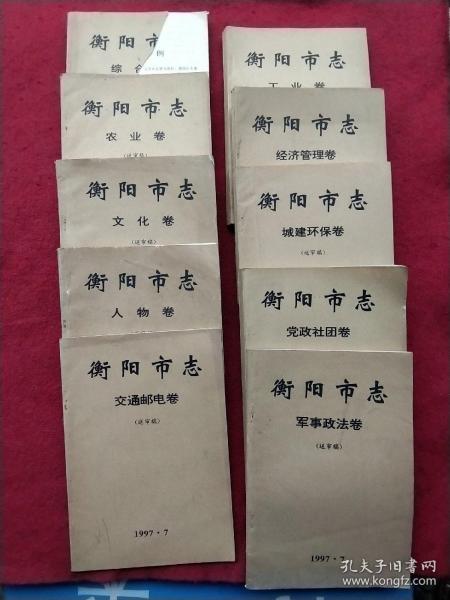 衡阳市
例
综合
衡阳市志
农业卷
(送审稿)
衡阳市志
文化卷
(送审稿)
衡阳市志
人物卷
衡阳市志
交通邮电卷
(送审稿)
1997·7
衡阳市志
工业卷
衡阳市志
经济管理卷
衡阳市志
城建环保卷
(送审稿)
衡阳市志
党政社团卷
衡阳市志
军事政法卷
(送审稿)
1997·7
孔夫子旧书网
www.kongfz.com